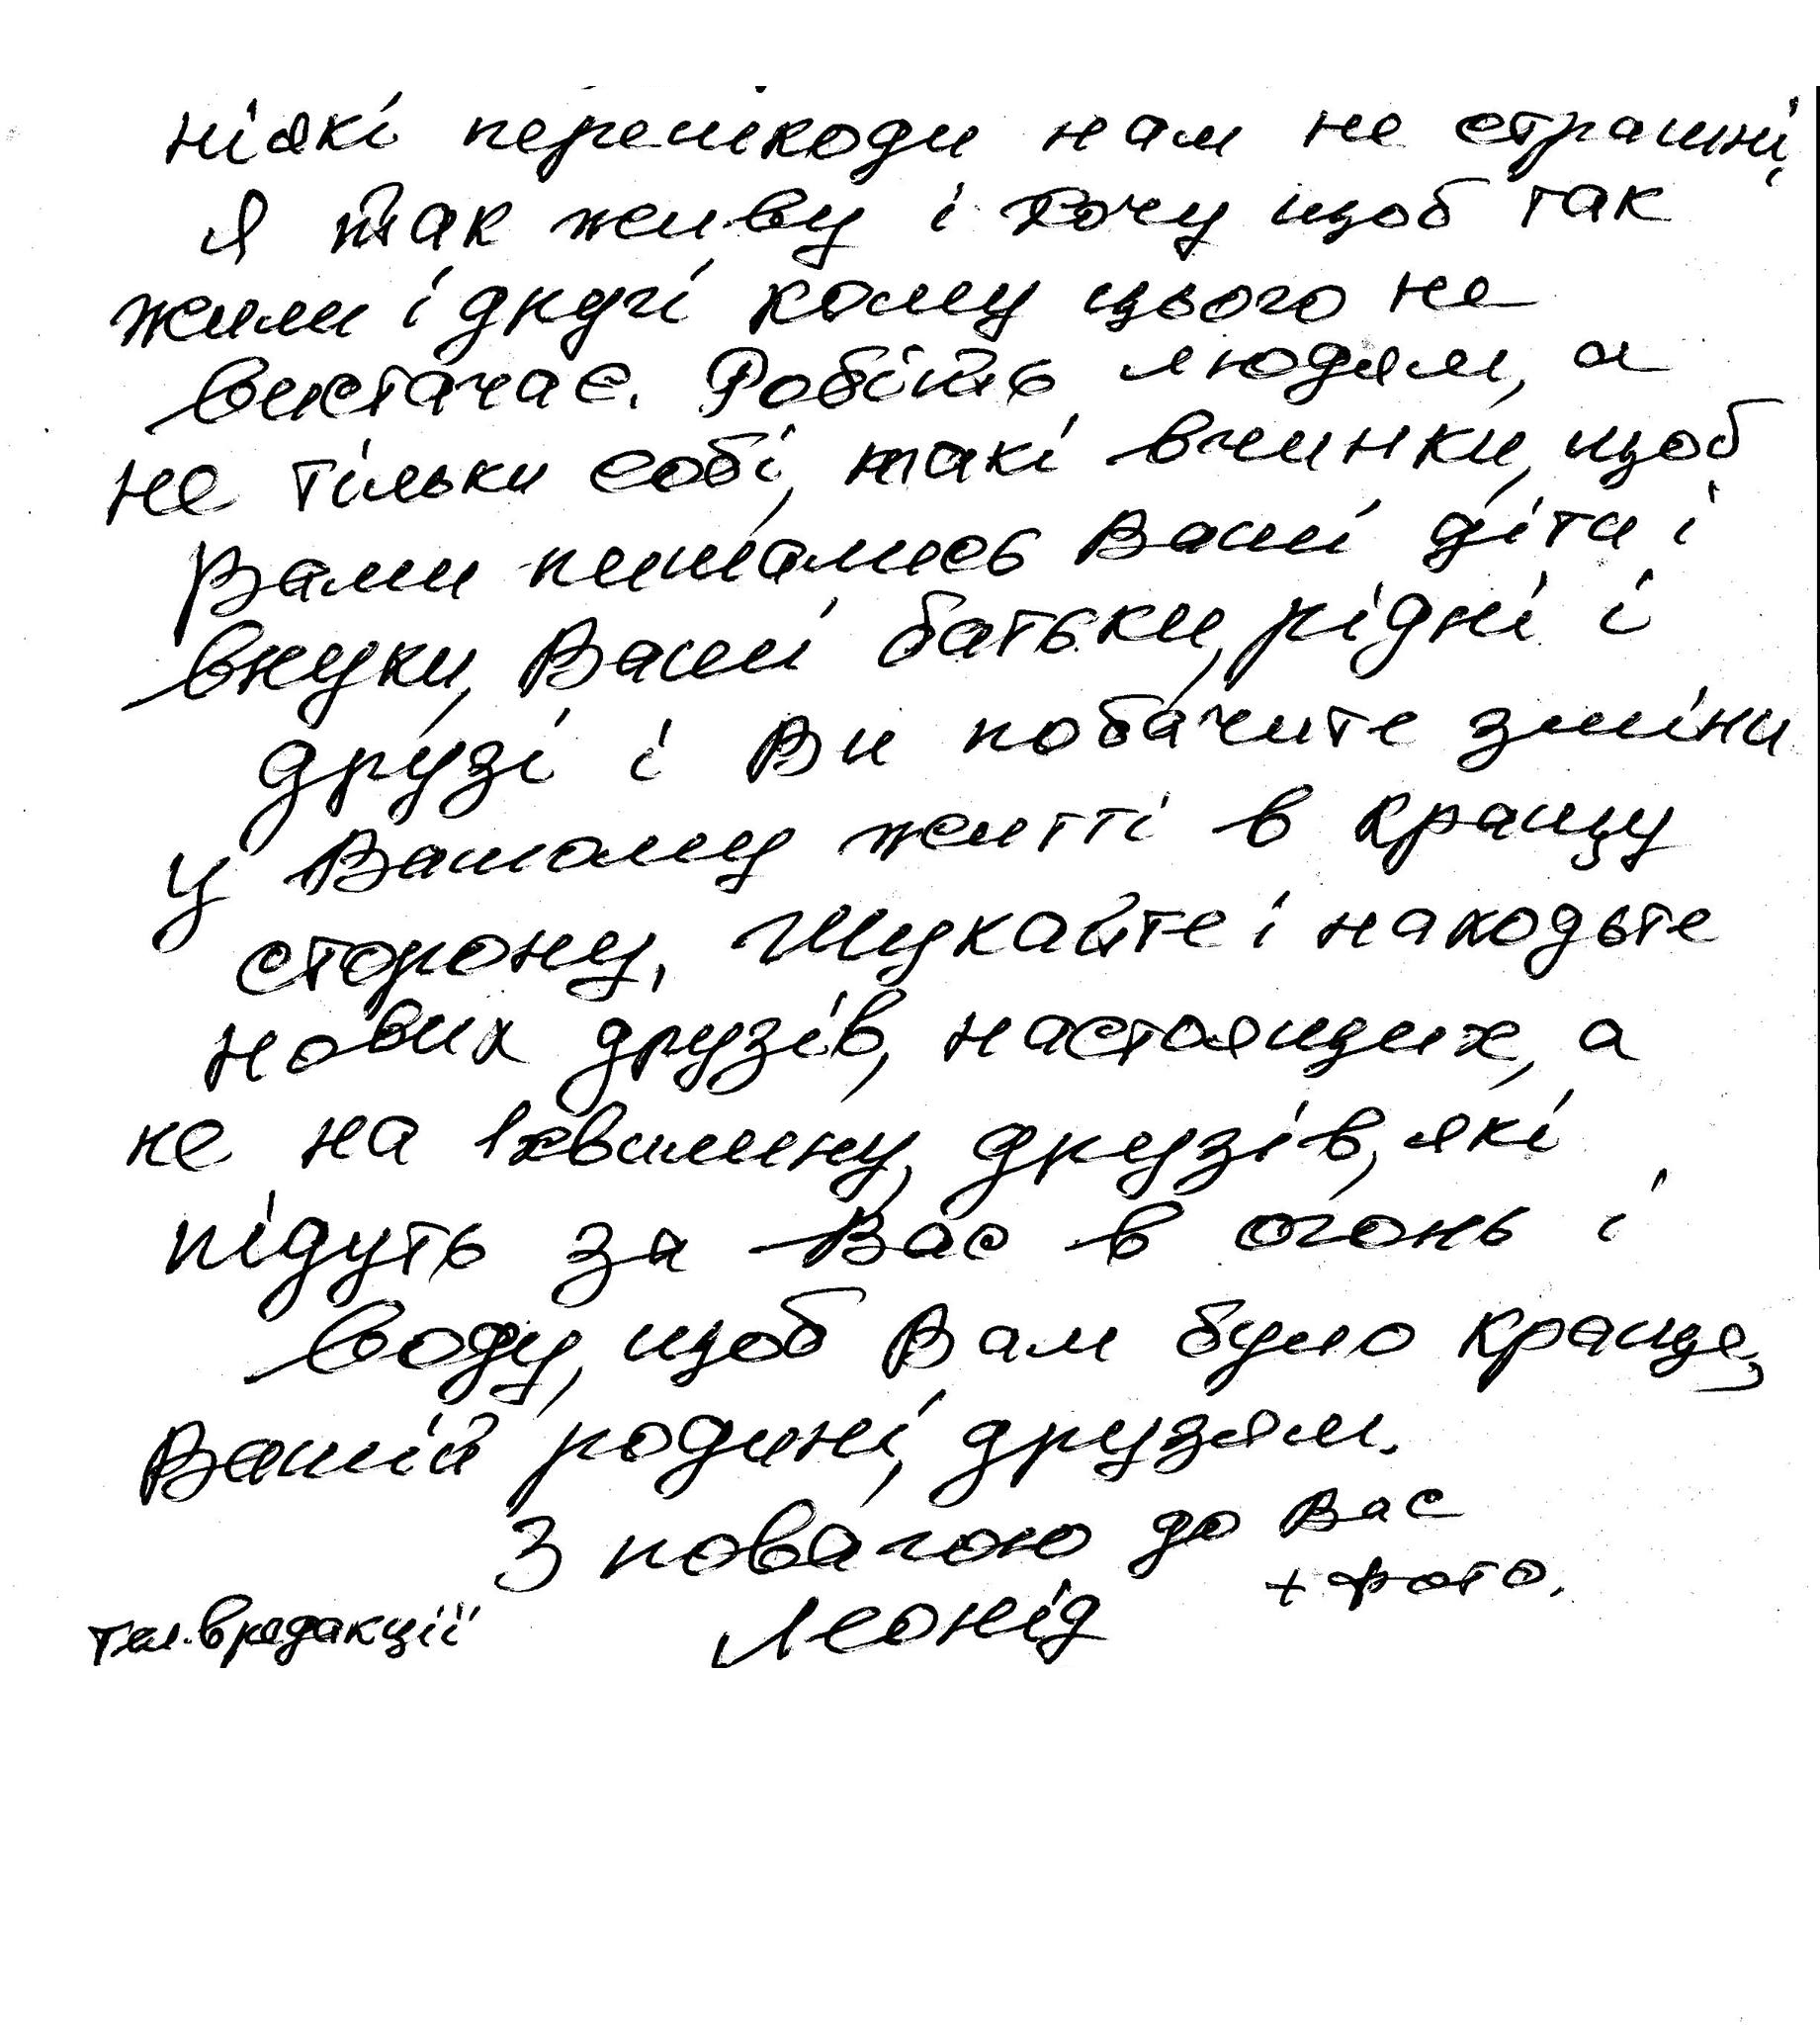 ніякі перешкоди нам не страшні,
Я так живу і хочу щоб так
жили і другі кому цього не
вистачає. Робіть людям, а
не тільки собі, такі вчинки, щоб
Вами пишались Ваші діти і
внуки, Ваші батьки, рідні і
друзі і Ви побачите зміни
у Вашому житті в кращу
сторону. Шукайте і находьте
нових друзів, настоящих, а
не на 1 хвилину, друзів, які
підуть за Вас в огонь і
воду, щоб Вам було краще,
Вашій родині, друзям.
З повагою до Вас
+ фото.
Леонід
тел. в редакції